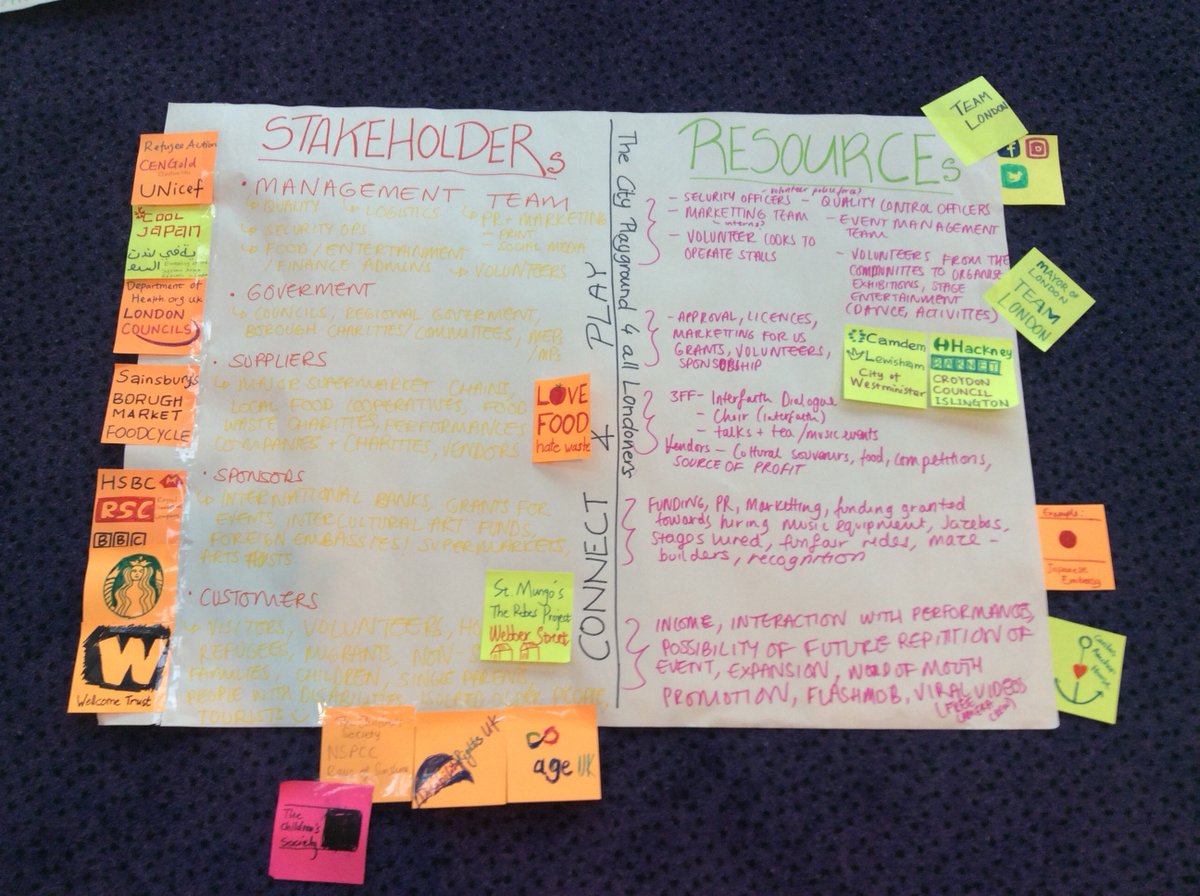 STAKEHOLDERs
• MANAGEMENT TEAM
↳ QUALITY ↳ LOGISTICS ↳ PR + MARKETING
↳ SECURITY OPS
- PRINT
- SOCIAL MEDIA
↳ FOOD / ENTERTAINMENT
/ FINANCE ADMINS ↳ VOLUNTEERS
• GOVERMENT
↳ COUNCILS, REGIONAL GOVERMENT,
BOROUGH CHARITIES/COMMITTEES, MEPs
/MPs
• SUPPLIERS
↳ MAJOR SUPERMARKET CHAINS,
LOCAL FOOD COOPERATIVES, FOOD
WASTE CHARITIES, PERFORMANCES
COMPANIES + CHARITIES, VENDORS
• SPONSORS
↳ INTERNATIONAL BANKS, GRANTS FOR
EVENTS, INTERCULTURAL ART FUNDS,
FOREIGN EMBASSIES / SUPERMARKETS,
ARTS
• CUSTOMERS
↳ VISITERS, VOLUNTEERS,
REFUGEES, MIGRANTS, NON-
FAMILIES, CHILDREN, SINGLE PARENTS,
PEOPLE WITH DISABILITIES, ISOLATED OLDER PEOPLE,
TOURISTS
The City Playground 4 all Londoners
PLAY
CONNECT
RESOURCEs
- SECURITY OFFICERS - QUALITY CONTROL OFFICERS
- MARKETTING TEAM - EVENT MANAGEMENT
TEAM
- VOLUNTEER COOKS TO
OPERATE STALLS
- VOLUNTEERS FROM THE
COMMUNITIES TO ORGANISE
EXHIBITIONS, STAGE
ENTERTAINMENT
(DANCE, ACTIVITIES)
- APPROVAL, LICENCES,
MARKETTING FOR US
GRANTS, VOLUNTEERS,
SPONSORSHIP
3FF- Interfaith Dialogue
- Choir (interfaith)
- talks + tea/music events
Vendors - Cultural souvenirs, food, competitions,
SOURCE OF PROFIT
FUNDING, PR, Marketting, funding granted
towards hiring music equipment, Jazebos,
stages hired, funfair rides, maze-
builders, recognition
INCOME, INTERACTION WITH PERFORMANCES,
POSSIBILITY OF FUTURE REPITITION OF
EVENT, EXPANSION, WORD OF MOUTH
PROMOTION, FLASHMOB, VIRAL VIDEOS
(FREE
CAMERA
CREW)
Refugee Action
CENGold
UNicef
COOL
JAPAN
Department of
Health.org.uk
LONDON
COUNCILS
Sainsbury's
BORUGH
MARKET
FOODCYCLE
HSBC
RSC
BBC
W
Wellcome Trust
LOVE
FOOD
hate waste
St. Mungo's
The Rebes Project
Webber Street
Society
NSPCC
Rights UK
age UK
The
children's
Society
TEAM
LONDON
MAYOR OF
LONDON
TEAM
LONDON
Camdem
Lewisham
City of
Westminister
Hackney
BARNET
CROYDON
COUNCIL
ISLINGTON
Example:
Japanese
Embassy